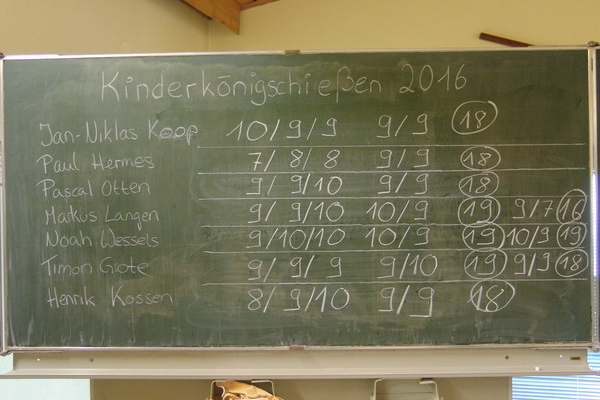 Kinderkönigschießen 2016
Jan-Niklas Koop 10/9/9 9/9 18
Paul Hermes 7/8/8 9/9 18
Pascal Otten 9/9/10 9/9 18
Markus Langen 9/9/10 10/9 19 9/7 16
Noah Wessels 9/10/10 10/9 19 10/9 19
Timon Grote 9/9/9 9/10 19 9/9 18
Henrik Kossen 8/9/10 9/9 18